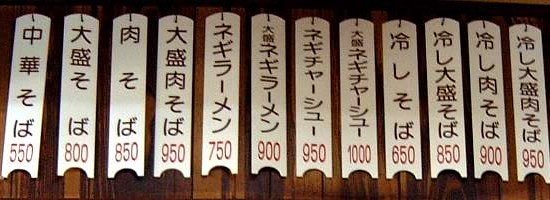 中華そば 550
大盛そば 800
肉そば 850
大盛肉そば 950
ネギラーメン 750
大盛ネギラーメン 900
ネギチャーシュー 950
大盛ネギチャーシュー 1000
冷しそば 650
冷し大盛そば 850
冷し肉そば 900
冷し大盛肉そば 950